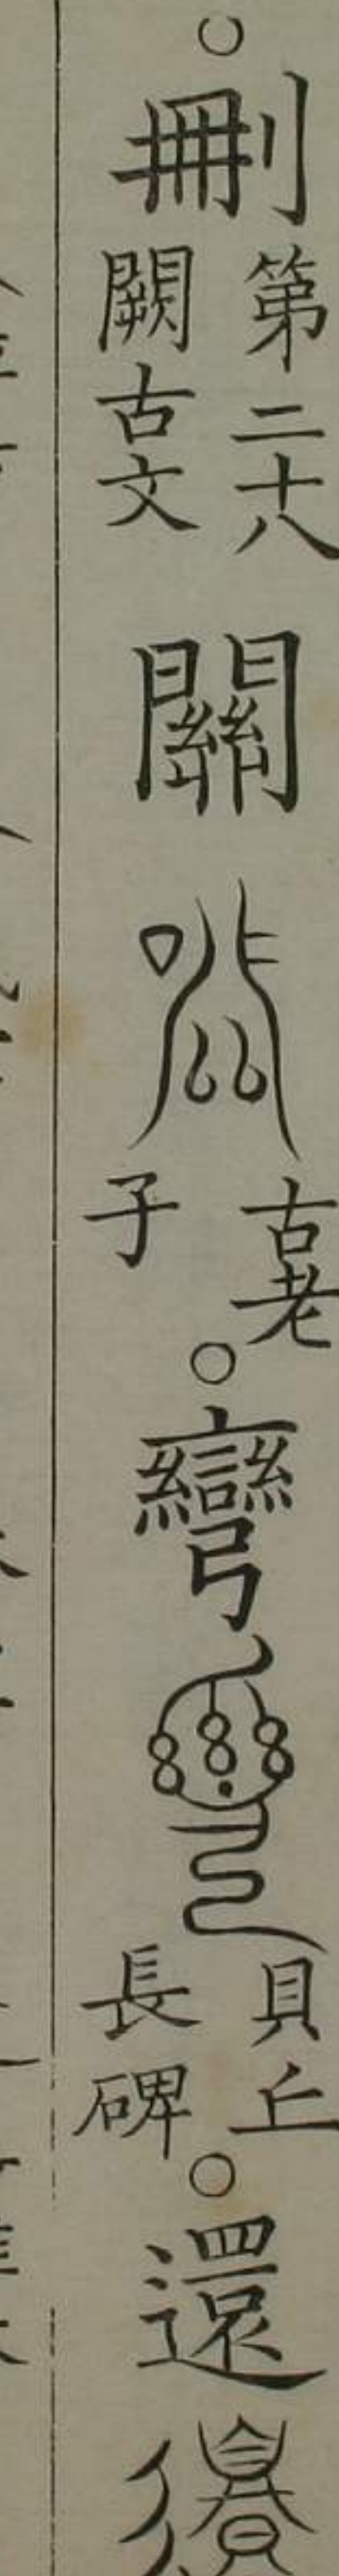 ○刪第二十八闕古文關古老子○彎貝丘長碑○還